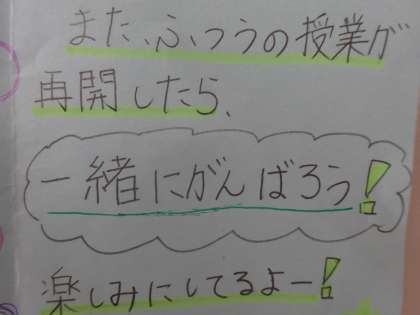 また、ふつうの授業が
再開したら、
一緒にがんばろう!
楽しみにしてるよー!